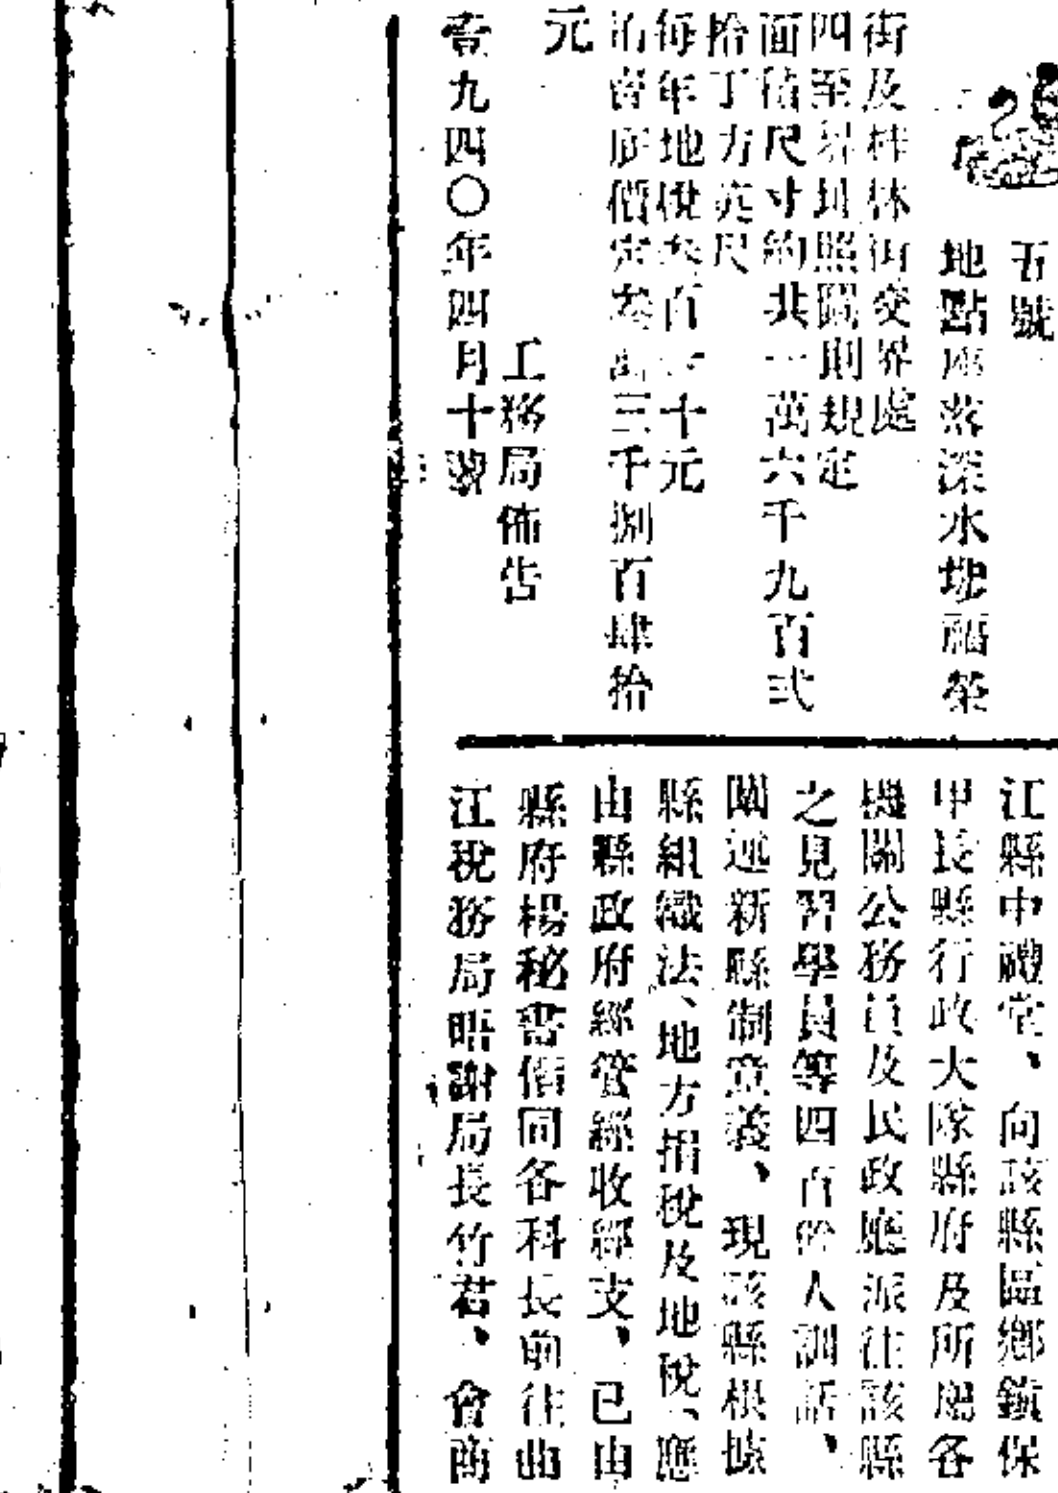 五號
地點座落深水埗福榮
街及桂林街交界處
四至界址照圖則規定
面積尺寸約共一萬六千九百弍
拾丁方英尺
每年地稅叁百一十元
沽賣底價定叁萬三千捌百肆拾
元
工務局佈告
壹九四〇年四月十號
江縣中禮堂、向該縣區鄉鎮保
甲長縣行政大隊縣府及所屬各
機關公務員及民政廳派往該縣
之見習學員等四百餘人訓話、
闡述新縣制意義、現該縣根據
縣組織法、地方捐稅及地稅、應
由縣政府經管經收經支、已由
縣府楊秘書偕同各科長前往曲
江稅務局晤謝局長竹君、會商